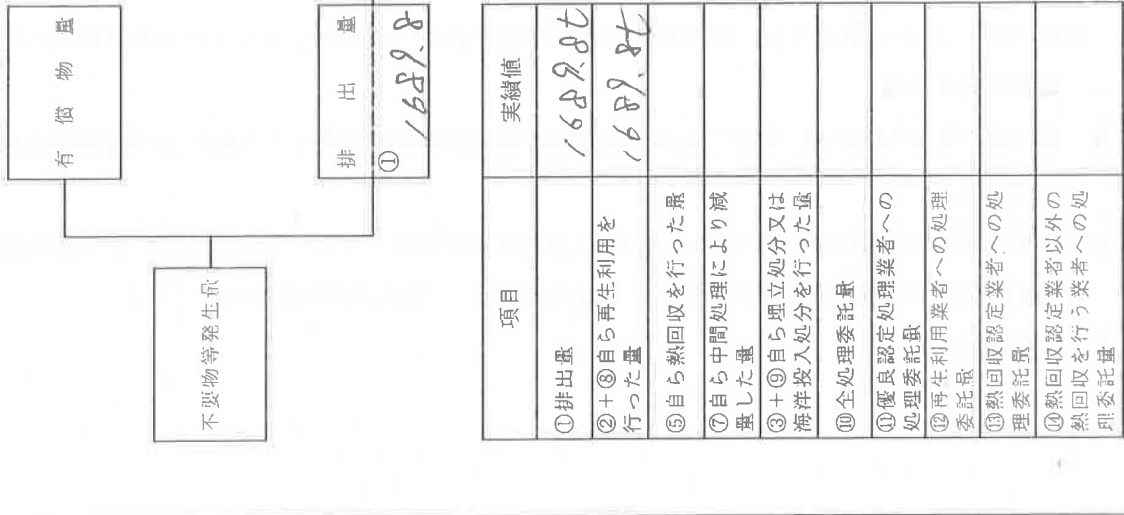 有償物量
不要物等発生量
排出量
①
1689.8
項目
実績値
①排出量
1689.8t
②+⑧自ら再生利用を
行った量
1689.8t
⑤自ら熱回収を行った量
⑦自ら中間処理により減
量した量
③+⑨自ら埋立処分又は
海洋投入処分を行った量
⑩全処理委託量
⑪優良認定処理業者への
処理委託量
⑫再生利用業者への処理
委託量
⑬熱回収認定業者への処
理委託量
⑭熱回収認定業者以外の
熱回収を行う業者への処
理委託量